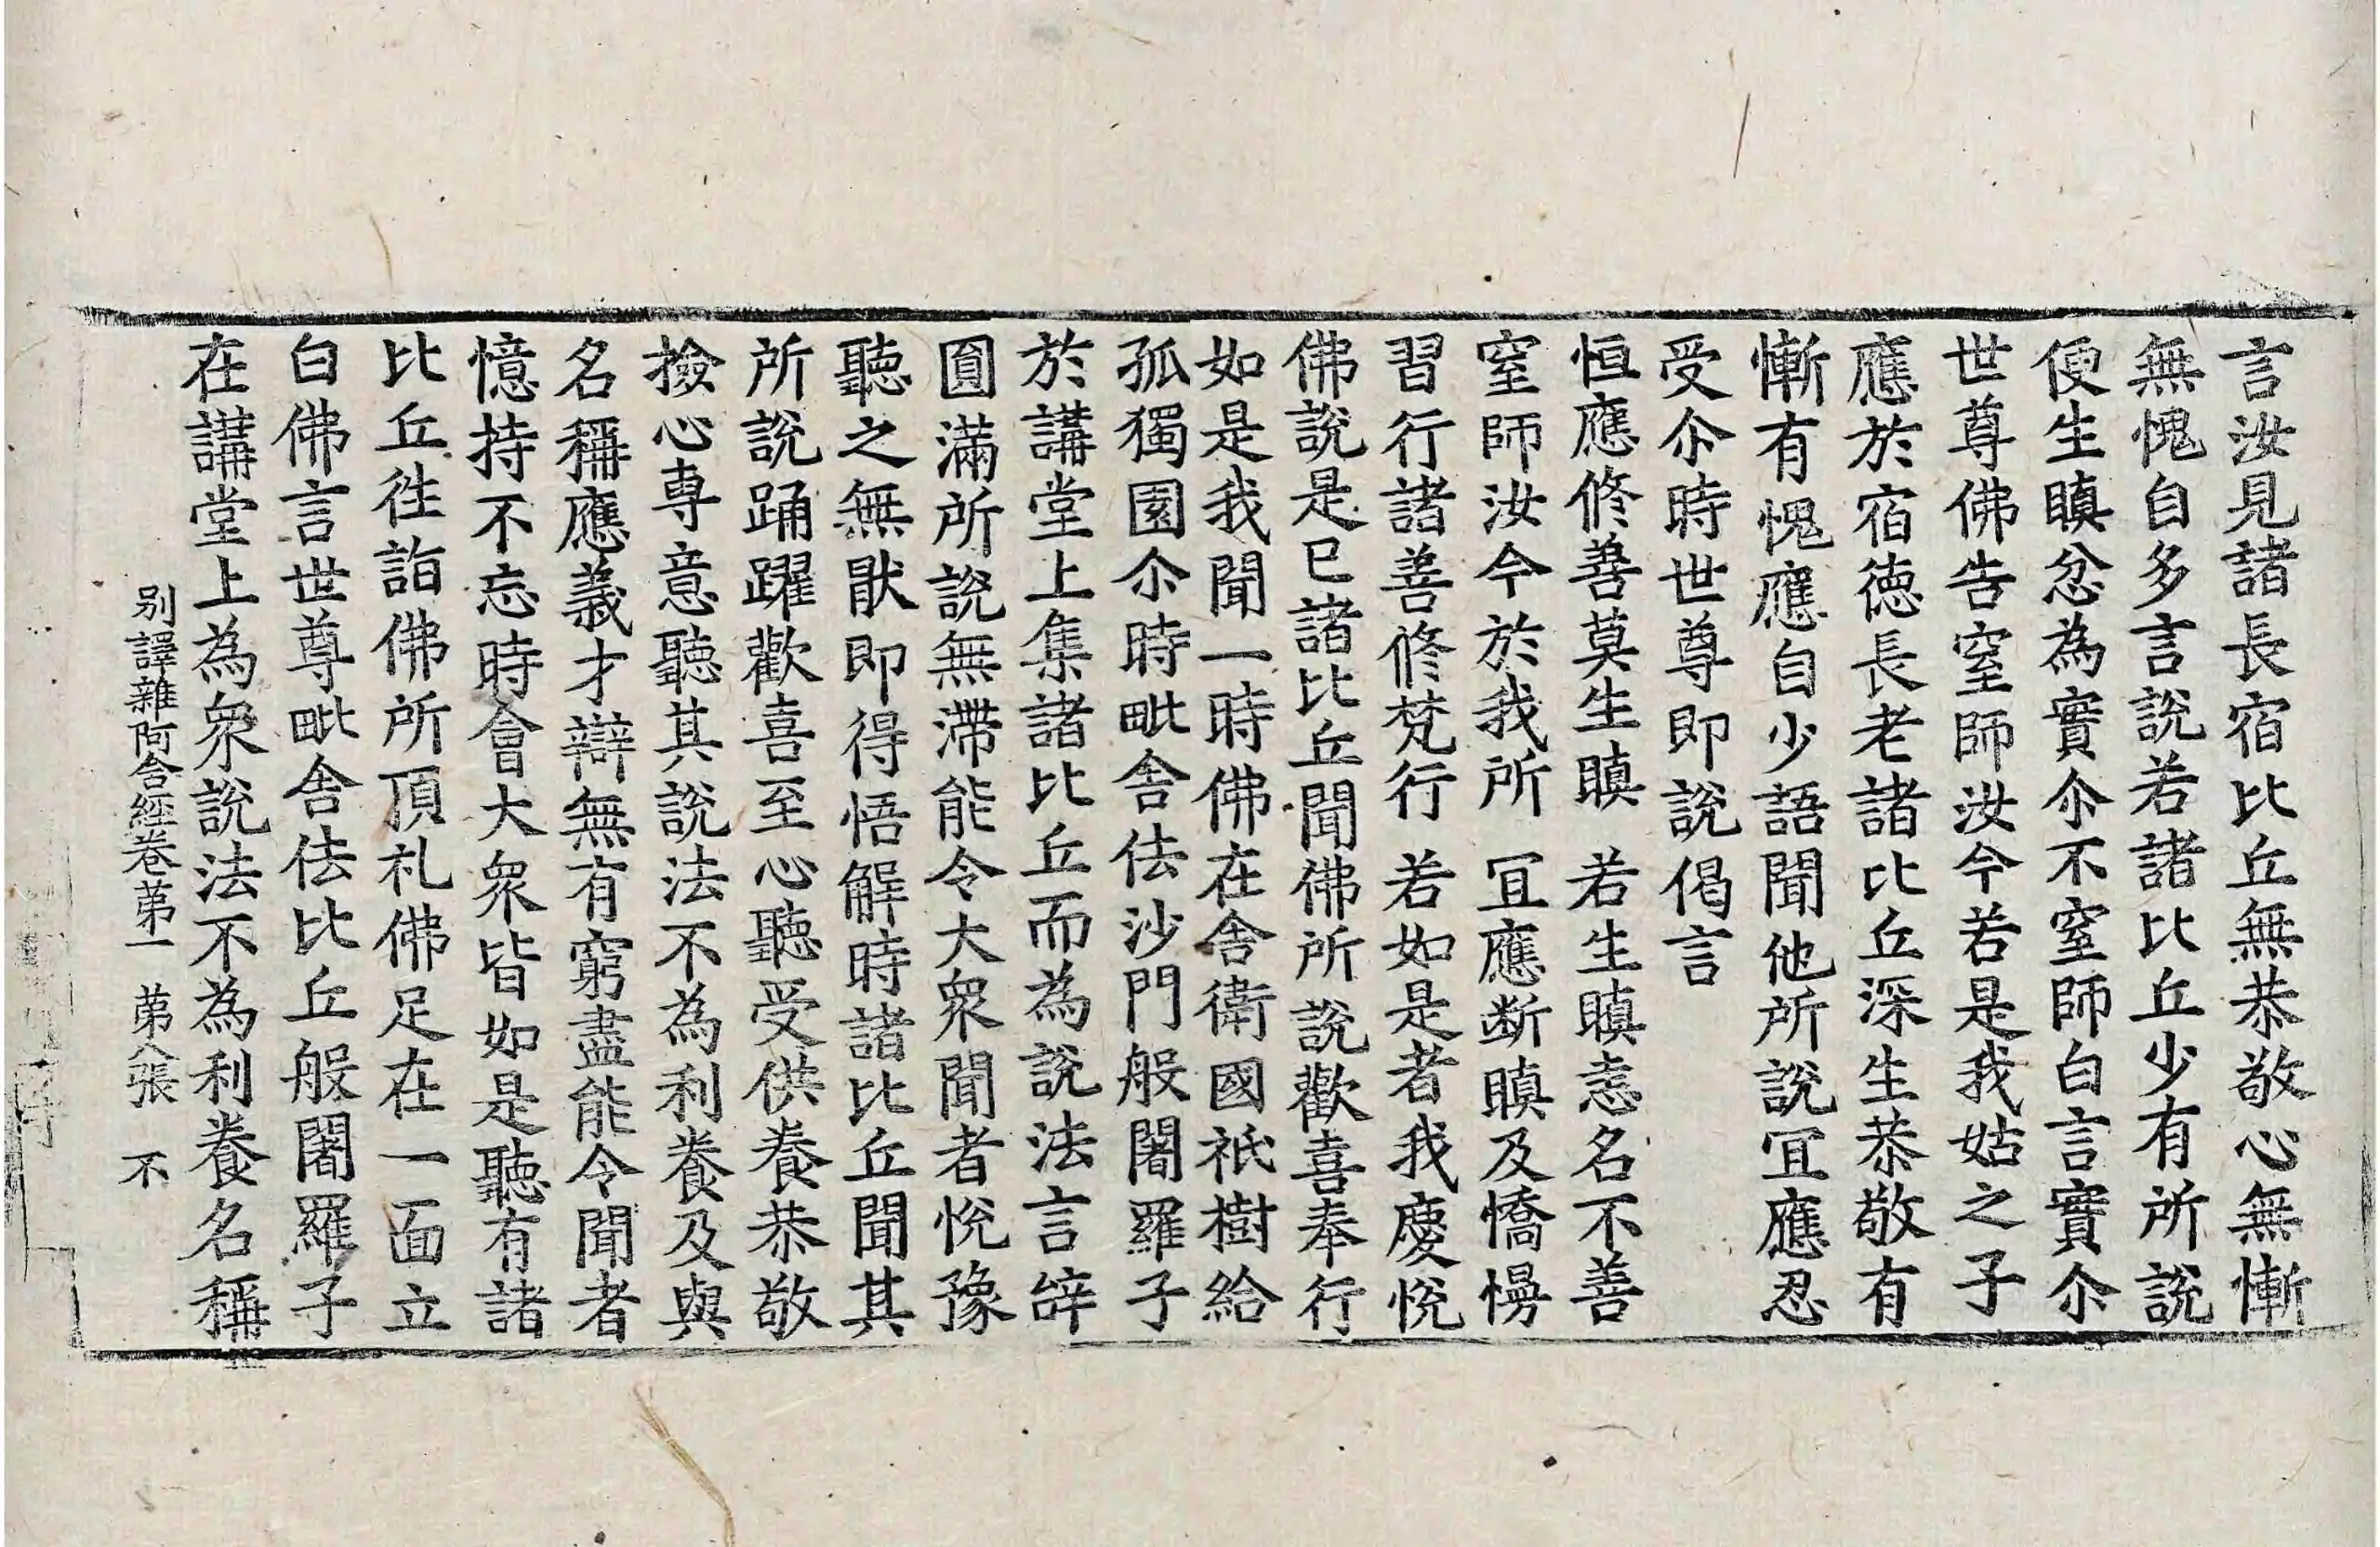 言汝見諸長宿比丘無恭敬心無慚
無愧自多言說若諸比丘少有所說
便生瞋忿為實尒不窒師白言實尒
世尊佛告窒師汝今若是我姑之子
應於宿德長老諸比丘深生恭敬有
慚有愧應自少語聞他所說冝應忍
受尒時世尊即說偈言
恒應修善莫生瞋　若生瞋恚名不善
窒師汝今於我所　冝應断瞋及憍慢
習行諸善修梵行　若如是者我慶悅
佛說是已諸比丘聞佛所說歡喜奉行
如是我聞一時佛在舍衛國祇樹給
孤獨園尒時毗舍佉沙門般闍羅子
於講堂上集諸比丘而為說法言辝
圓滿所說無滯能令大衆聞者悅豫
聽之無猒即得悟解時諸比丘聞其
所說踊躍歡喜至心聽受供養恭敬
撿心專意聽其說法不為利養及與
名稱應義才辯無有窮盡能令聞者
憶持不忘時會大衆皆如是聽有諸
比丘徃詣佛所頂礼佛足在一面立
白佛言世尊毗舍佉比丘般闍羅子
在講堂上為衆說法不為利養名稱
别譯雜阿含經卷苐一　苐八張　不